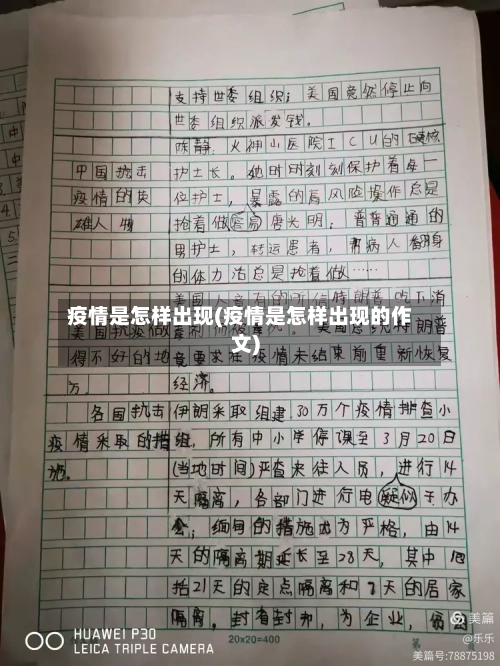 支持世委组织；美国竟然停止向
世委组织派发钱。
陈静：火神山医院ICU的硬核
中国抗击
护士长。她时时刻刻保护着每一
疫情的英
位护士，暴露的高风险操作总是
雄人物
抢着做
唐光明：普普通通的
男护士，转运患者，帮病人翻身
的体力活总是抢着做……
疫情是怎样出现(疫情是怎样出现的作
文)
得不好的地
要求在疫情未结束前重新恢复
方。
经济。
各国抗击
伊朗采取组建30万个疫情排查小
疫情采取的措
组，所有中小学停课至3月20日
施。
(当地时间)严查来往人员，进行14
天隔离，各部门进行电
疑似
于办
公；缅甸的措施尤为严格，由14
天的隔离期延长至28天，其中
括21天的定点隔离和7天的居家
隔离。封省封市，为企业，
20x20=400
HUAWEI P30
LEICA TRIPLE CAMERA
美篇
@乐乐
美篇号:78875198